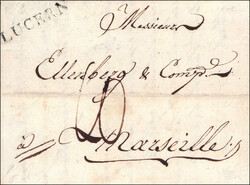 LUCERN
Messieurs
Ellenberg & Comp.
à Marseille